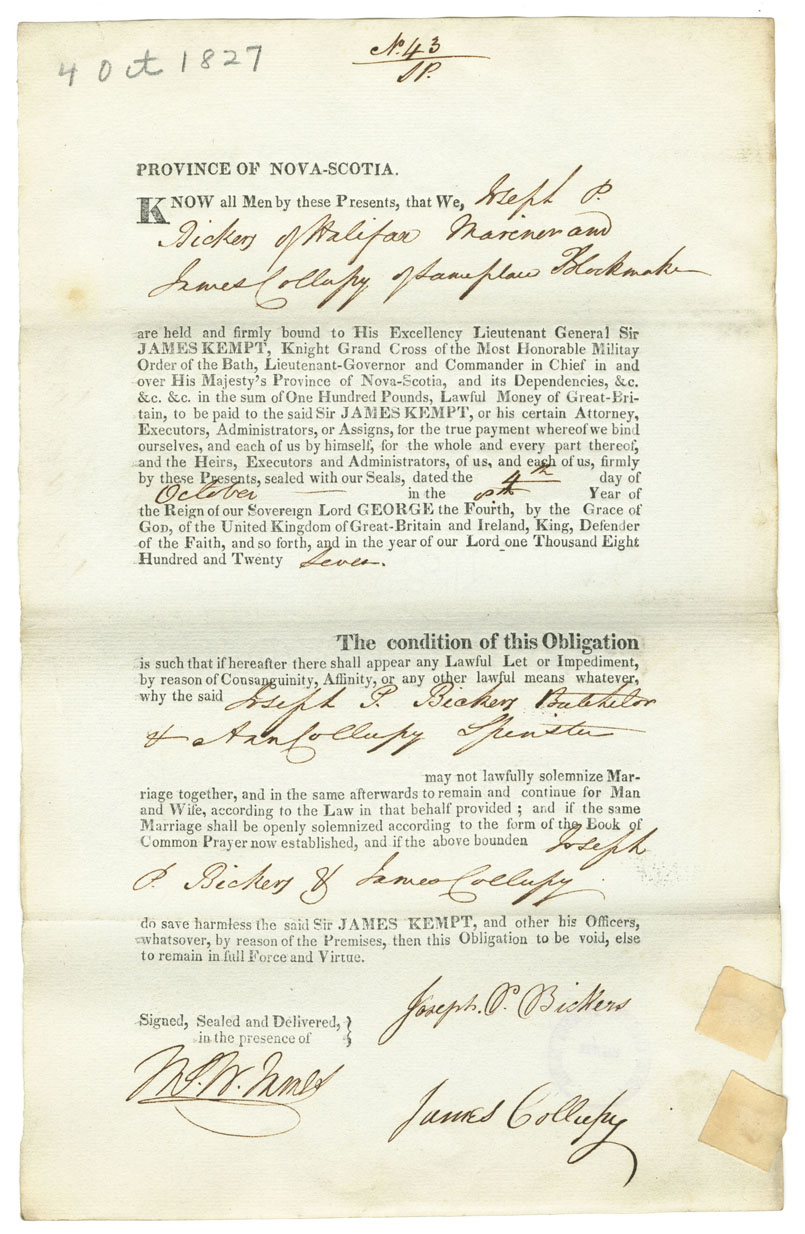 4 Oct 1827
No. 43
SP.
PROVINCE OF NOVA-SCOTIA.
KNOW all Men by these Presents, that We, Joseph P.
Bickers of Halifax Mariner and
James Collupy of same place Blockmaker
are held and firmly bound to His Excellency Lieutenant General Sir
JAMES KEMPT, Knight Grand Cross of the Most Honorable Militay
Order of the Bath, Lieutenant-Governor and Commander in Chief in and
over His Majesty's Province of Nova-Scotia, and its Dependencies, &c.
&c. &c. in the sum of One Hundred Pounds, Lawful Money of Great-Bri-
tain, to be paid to the said Sir JAMES KEMPT, or his certain Attorney,
Executors, Administrators, or Assigns, for the true payment whereof we bind
ourselves, and each of us by himself, for the whole and every part thereof,
and the Heirs, Executors and Administrators, of us, and each of us, firmly
by these Presents, sealed with our Seals, dated the 4th day of
October — in the 8th Year of
the Reign of our Sovereign Lord GEORGE the Fourth, by the Grace of
GOD, of the United Kingdom of Great-Britain and Ireland, King, Defender
of the Faith, and so forth, and in the year of our Lord one Thousand Eight
Hundred and Twenty Seven.
The condition of this Obligation
is such that if hereafter there shall appear any Lawful Let or Impediment,
by reason of Consanguinity, Affinity, or any other lawful means whatever,
why the said Joseph P. Bickers Batchelor
& Ann Collupy Spinster
may not lawfully solemnize Mar-
riage together, and in the same afterwards to remain and continue for Man
and Wife, according to the Law in that behalf provided ; and if the same
Marriage shall be openly solemnized according to the form of the Book of
Common Prayer now established, and if the above bounden Joseph
P. Bickers & James Collupy
do save harmless the said Sir JAMES KEMPT, and other his Officers,
whatsover, by reason of the Premises, then this Obligation to be void, else
to remain in full Force and Virtue.
Joseph. P. Bickers
Signed, Sealed and Delivered,
in the presence of
James Collupy